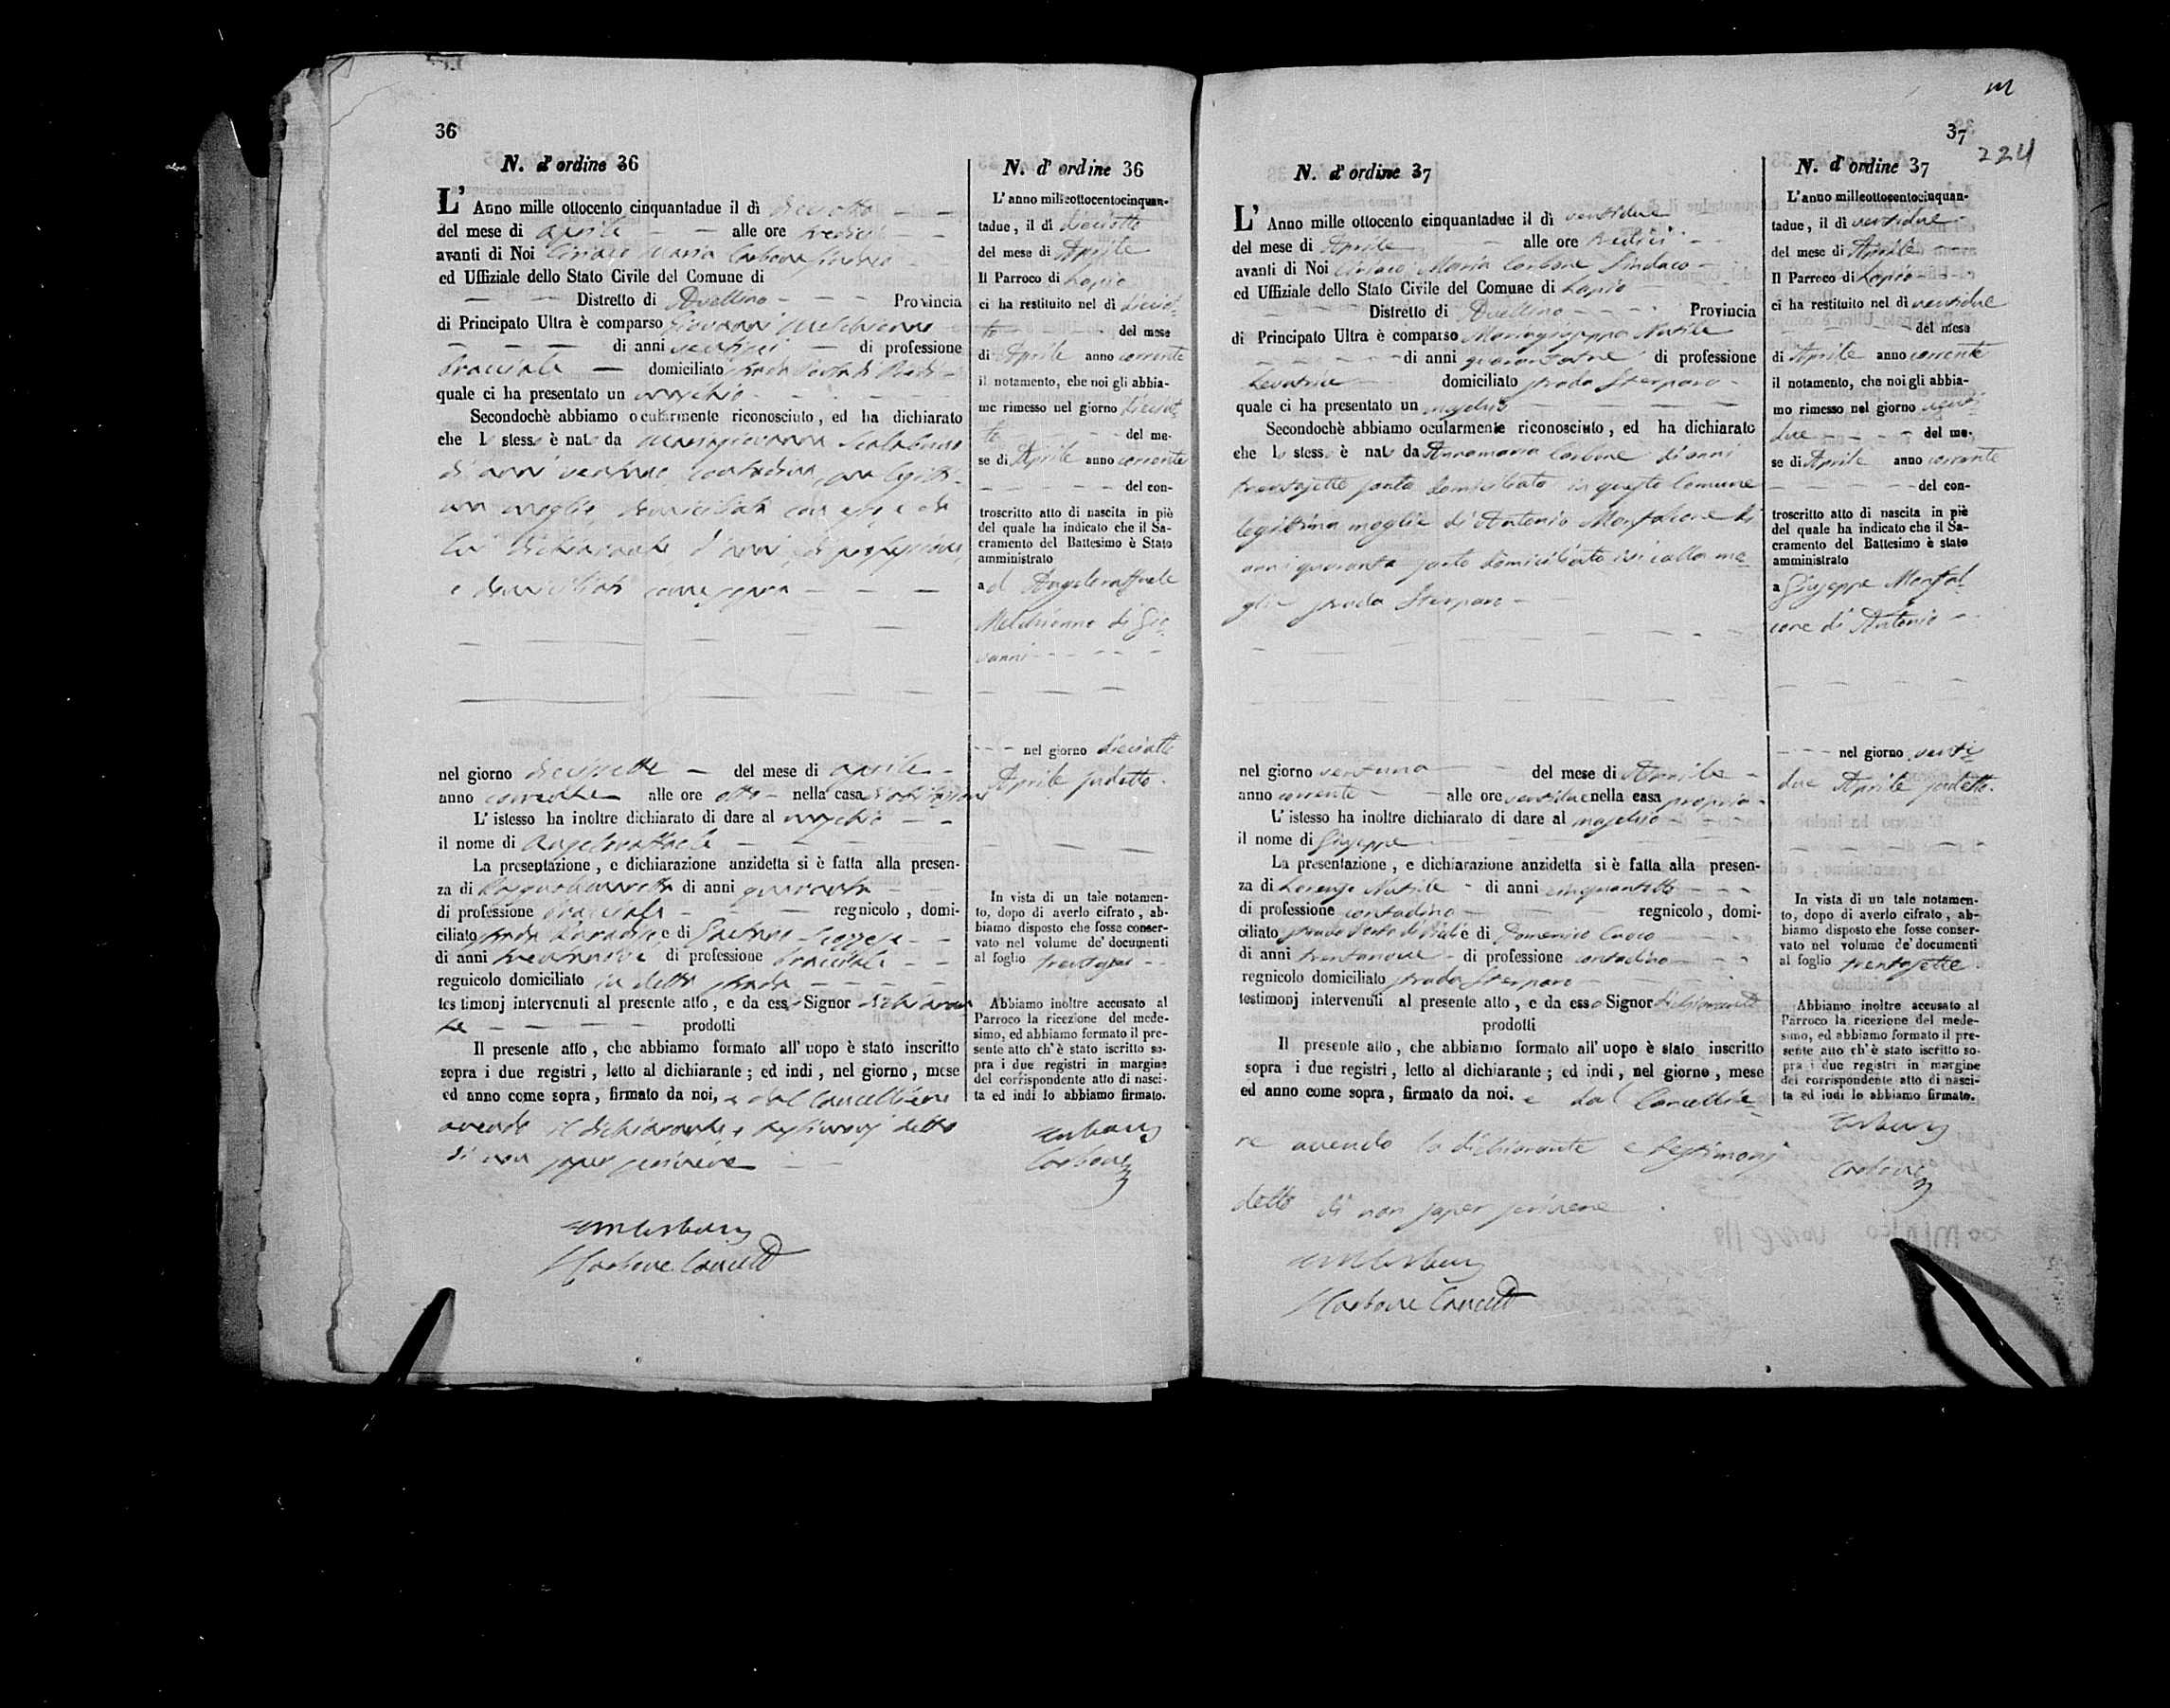 36
N. d' ordine 36
L' Anno mille ottocento cinquantadue il dì dieciotto
del mese di aprile alle ore tredici
avanti di Noi Ciriaco Maria Carbone Sindaco
ed Uffiziale dello Stato Civile del Comune di
Distretto di Avellino Provincia
di Principato Ultra è comparso Giovanni Melchionno
di anni di professione
bracciale domiciliato strada
quale ci ha presentato un maschio
Secondochè abbiamo ocularmente riconosciuto, ed ha dichiarato
che l stess è nat da Mariagiovanna
di anni contadina, sua legitti-
ma moglie, domiciliata con esso e da
lui dichiarante d'anni, di professione,
e domiciliato come sopra
nel giorno diecisette del mese di aprile
anno corrente alle ore otto nella casa d'abitazione
L' istesso ha inoltre dichiarato di dare al maschio
il nome di Angeloraffaele
La presentazione, e dichiarazione anzidetta si è fatta alla presen-
za di di anni quaranta
di professione bracciale regnicolo, domi-
ciliato strada e di Gaetano
di anni di professione bracciale
regnicolo domiciliato in detta strada
testimonj intervenuti al presente atto, e da esso Signor dichiaran
te prodotti
Il presente atto, che abbiamo formato all' uopo è stato inscritto
sopra i due registri, letto al dichiarante; ed indi, nel giorno, mese
ed anno come sopra, firmato da noi, e dal Cancelliere
avendo il dichiarante, e testimonj detto
di non saper scrivere
Carbone Cancell
N. d' ordine 36
L' anno milleottocentocinquan-
tadue, il dì dieciotto
del mese di Aprile
Il Parroco di Lapio
ci ha restituito nel dì dieciot-
to del mese
di Aprile anno corrente
il notamento, che noi gli abbia-
mo rimesso nel giorno dieciot-
to del me-
se di Aprile anno corrente
del con-
troscritto atto di nascita in piè
del quale ha indicato che il Sa-
cramento del Battesimo è Stato
amministrato
ad Angeloraffaele
Melchionno di Gio-
vanni
nel giorno dieciotto
Aprile sudetto.
In vista di un tale notamen-
to, dopo di averlo cifrato, ab-
biamo disposto che fosse conser-
vato nel volume de' documenti
al foglio trentasei
Abbiamo inoltre accusato al
Parroco la ricezione del mede-
simo, ed abbiamo formato il pre-
sente atto ch' è stato iscritto so-
pra i due registri in margine
del corrispondente atto di nasci-
ta ed indi lo abbiamo firmato.
Carbone
37
224
N. d' ordine 37
L' Anno mille ottocento cinquantadue il dì ventidue
del mese di Aprile alle ore tredici
avanti di Noi Ciriaco Maria Carbone Sindaco
ed Uffiziale dello Stato Civile del Comune di Lapio
Distretto di Avellino Provincia
di Principato Ultra è comparso Mariagiuseppa Nutile
di anni di professione
Levatrice domiciliato strada Sterparo
quale ci ha presentato un maschio
Secondochè abbiamo ocularmente riconosciuto, ed ha dichiarato
che l stess è nat da Annamaria Carbone di anni
trentasette domiciliata in questo Comune
legittima moglie di Antonio Monfalcone di
anni quaranta domiciliato ivi colla mo-
glie strada Sterparo
nel giorno ventuno del mese di Aprile
anno corrente alle ore ventidue nella casa propria
L' istesso ha inoltre dichiarato di dare al maschio
il nome di Giuseppe
La presentazione, e dichiarazione anzidetta si è fatta alla presen-
za di Lorenzo Nutile di anni cinquantotto
di professione contadino regnicolo, domi-
ciliato strada e di Domenico Cuoco
di anni trentanove di professione contadino
regnicolo domiciliato strada Sterparo
testimonj intervenuti al presente atto, e da esso Signor dichiarante
prodotti
Il presente atto, che abbiamo formato all' uopo è stato inscritto
sopra i due registri, letto al dichiarante; ed indi, nel giorno, mese
ed anno come sopra, firmato da noi. e dal Cancellie-
re avendo la dichiarante e testimonj
detto di non saper scrivere
Carbone Cancell
N. d' ordine 37
L' anno milleottocentocinquan-
tadue, il dì ventidue
del mese di Aprile
Il Parroco di Lapio
ci ha restituito nel dì ventidue
del mese
di Aprile anno corrente
il notamento, che noi gli abbia-
mo rimesso nel giorno venti-
due del me-
se di Aprile anno corrente
del con-
troscritto atto di nascita in piè
del quale ha indicato che il Sa-
cramento del Battesimo è stato
amministrato
a Giuseppe Monfal-
cone di Antonio
nel giorno venti-
due Aprile sudetto.
In vista di un tale notamen-
to, dopo di averlo cifrato, ab-
biamo disposto che fosse conser-
vato nel volume de' documenti
al foglio trentasette
Abbiamo inoltre accusato al
Parroco la ricezione del mede-
simo, ed abbiamo formato il pre-
sente atto ch' è stato iscritto so-
pra i due registri in margine
del corrispondente atto di nasci-
ta ed indi lo abbiamo firmato.
Carbone